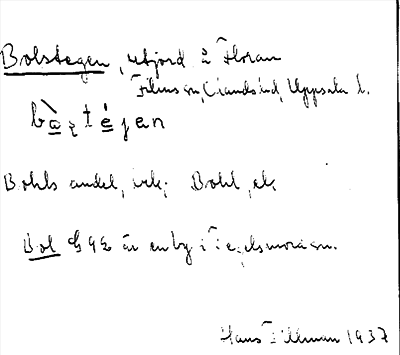 Bolstegen, utjord i Floran
Films sn, Olands hd, Uppsala l.
Bohls andel, urk. Bohl, ek
Bol är en by i Tegelsmoran.
Hans Tillman 1937